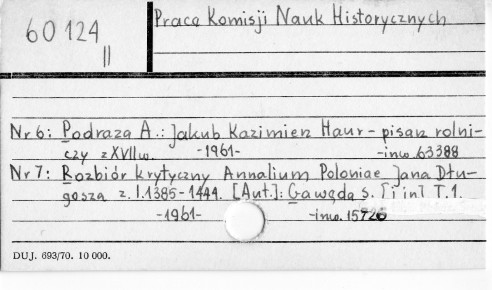 60124
II
Prace Komisji Nauk Historycznych
Nr 6: Podraza A.: Jakub Kazimierz Haur - pisarz rolni-
czy z XVII w. -1961- -inw. 63388
Nr 7: Rozbiór krytyczny Annalium Poloniae Jana Dłu-
gosza z l. 1385-1444. [Aut.]: Gawęda S. [i in] T.1.
-1961- -inw. 15726
DUJ. 693/70. 10 000.